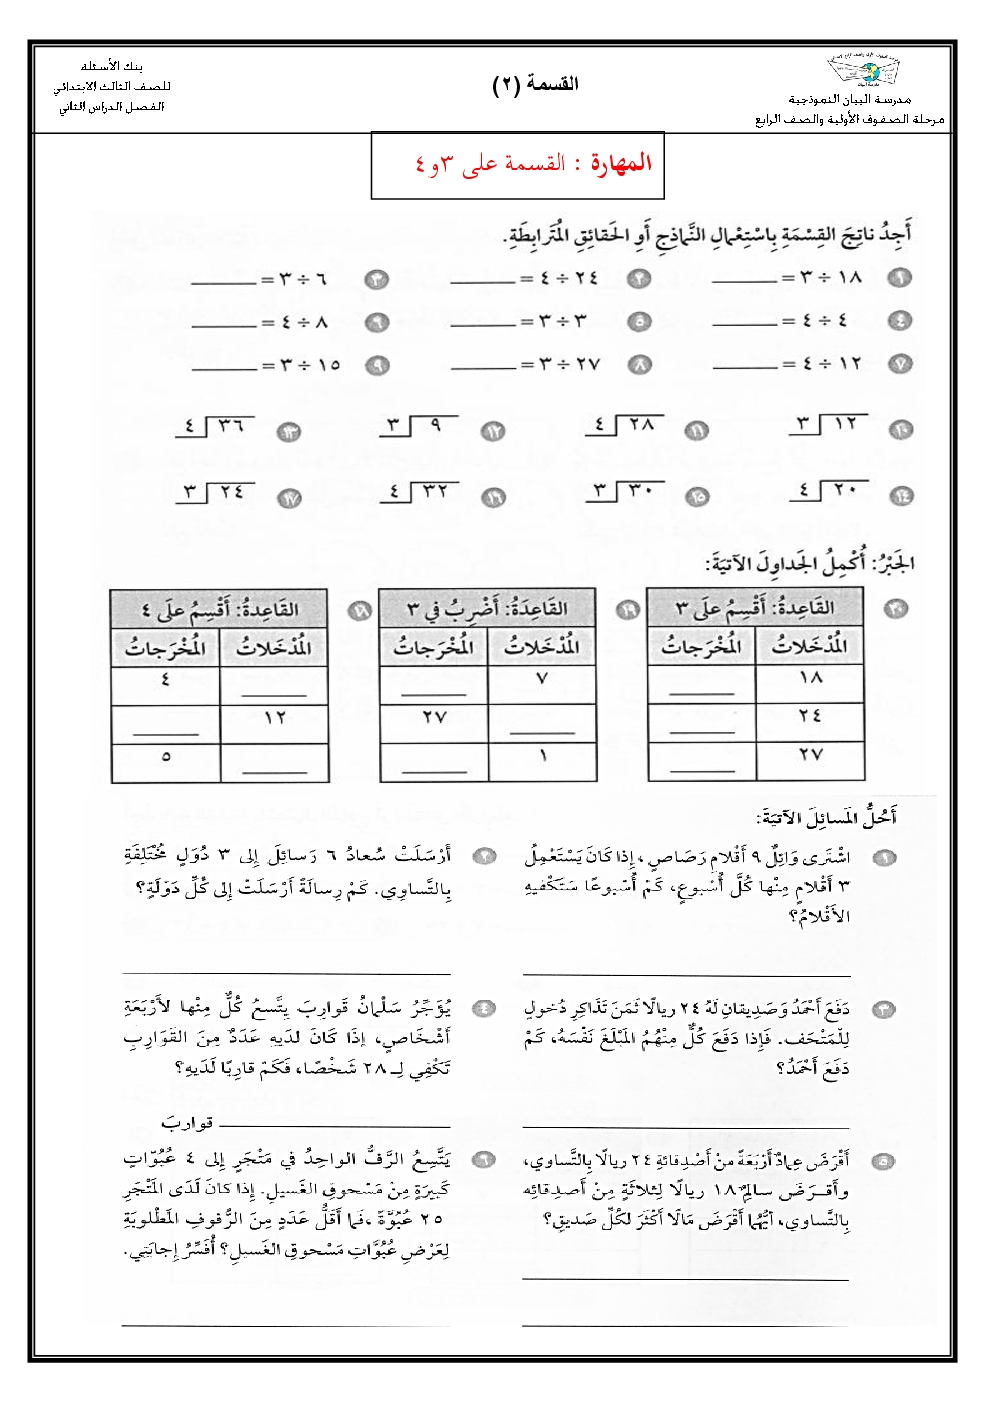 مدرسة البيان النموذجية
مرحلة الصفوف الأولية والصف الرابع
القسمة (٢)
بنك الأسئلة
للصف الثالث الابتدائي
الفصل الدراس الثاني
المهارة : القسمة على ٣و٤
أَجِدُ ناتِجَ القِسْمَةِ بِاسْتِعْمالِ النَّماذِجِ أَوِ الحَقائِقِ المُتَرابِطَةِ.
١ ١٨ ÷ ٣ = ______ ٢ ٢٤ ÷ ٤ = ______ ٣ ٦ ÷ ٣ = ______
٤ ٤ ÷ ٤ = ______ ٥ ٣ ÷ ٣ = ______ ٦ ٨ ÷ ٤ = ______
٧ ١٢ ÷ ٤ = ______ ٨ ٢٧ ÷ ٣ = ______ ٩ ١٥ ÷ ٣ = ______
١٠ ٣ ١٢ ١١ ٤ ٢٨ ١٢ ٣ ٩ ١٣ ٤ ٣٦
١٤ ٤ ٢٠ ١٥ ٣ ٣٠ ١٦ ٤ ٣٢ ١٧ ٣ ٢٤
الجَبْرُ: أُكْمِلُ الجَداوِلَ الآتيَةَ:
٢٠ القَاعِدَةُ: أَقْسِمُ عَلَى ٣
المُدْخَلاتُ المُخْرَجاتُ
١٨ ______
٢٤ ______
٢٧ ______
١٩ القَاعِدَةُ: أَضْرِبُ في ٣
المُدْخَلاتُ المُخْرَجاتُ
٧ ______
______ ٢٧
١ ______
١٨ القَاعِدَةُ: أَقْسِمُ عَلَى ٤
المُدْخَلاتُ المُخْرَجاتُ
______ ٤
١٢ ______
______ ٥
أَحُلُّ المَسائِلَ الآتيَةَ:
١ اشْتَرى وَائِلٌ ٩ أَقْلامِ رَصَاصٍ، إذا كَانَ يَسْتَعْمِلُ
٣ أَقْلامٍ مِنْها كُلَّ أُسْبوعٍ، كَمْ أُسْبوعًا سَتَكْفيهِ
الأَقْلامُ؟
٢ أَرْسَلَتْ سُعادُ ٦ رَسائِلَ إِلى ٣ دُوَلٍ مُخْتَلِفَةٍ
بِالتَّساوِي. كَمْ رِسالَةً أَرْسَلَتْ إِلى كُلِّ دَوْلَةٍ؟
٣ دَفَعَ أَحْمَدُ وَصَدِيقانِ لَهُ ٢٤ ريالًا ثَمَنَ تَذَاكِرِ دُخولٍ
لِلْمَتْحَفِ. فَإِذا دَفَعَ كُلٌّ مِنْهُمُ المَبْلَغَ نَفْسَهُ، كَمْ
دَفَعَ أَحْمَدُ؟
٤ يُؤَجِّرُ سَلْمانُ قَوارِبَ يتَّسِعُ كُلٌّ مِنْها لأَرْبَعَةِ
أَشْخَاصٍ، إذَا كَانَ لَدَيهِ عَدَدٌ مِنَ القَوَارِبِ
تَكْفِي لِـ ٢٨ شَخْصًا، فَكَمْ قارِبًا لَدَيهِ؟
______ قوارِبَ
٥ أَقْرَضَ عِمادٌ أَرْبَعَةً مِنْ أَصْدِقائِهِ ٢٤ ريالًا بِالتَّساوي،
وأَقْرَضَ سالِمٌ ١٨ ريالًا لِثلاثَةٍ مِنْ أَصدِقائِه
بِالتَّساوي، أيُّهُما أَقْرَضَ مَالًا أَكْثَرَ لكُلِّ صَديقٍ؟
٦ يَتَّسِعُ الرَّفُّ الواحِدُ في مَتْجَرٍ إِلى ٤ عُبُوّاتٍ
كَبيرَةٍ مِنْ مَسْحوقِ الغَسيلِ. إذا كانَ لَدَى المَتْجَرِ
٢٥ عُبُوَّةً، فَما أَقَلُّ عَدَدٍ مِنَ الرُّفوفِ المَطْلوبَةِ
لِعَرْضِ عُبُوَّاتِ مَسْحوقِ الغَسيلِ؟ أُفَسِّرُ إِجابَتي.